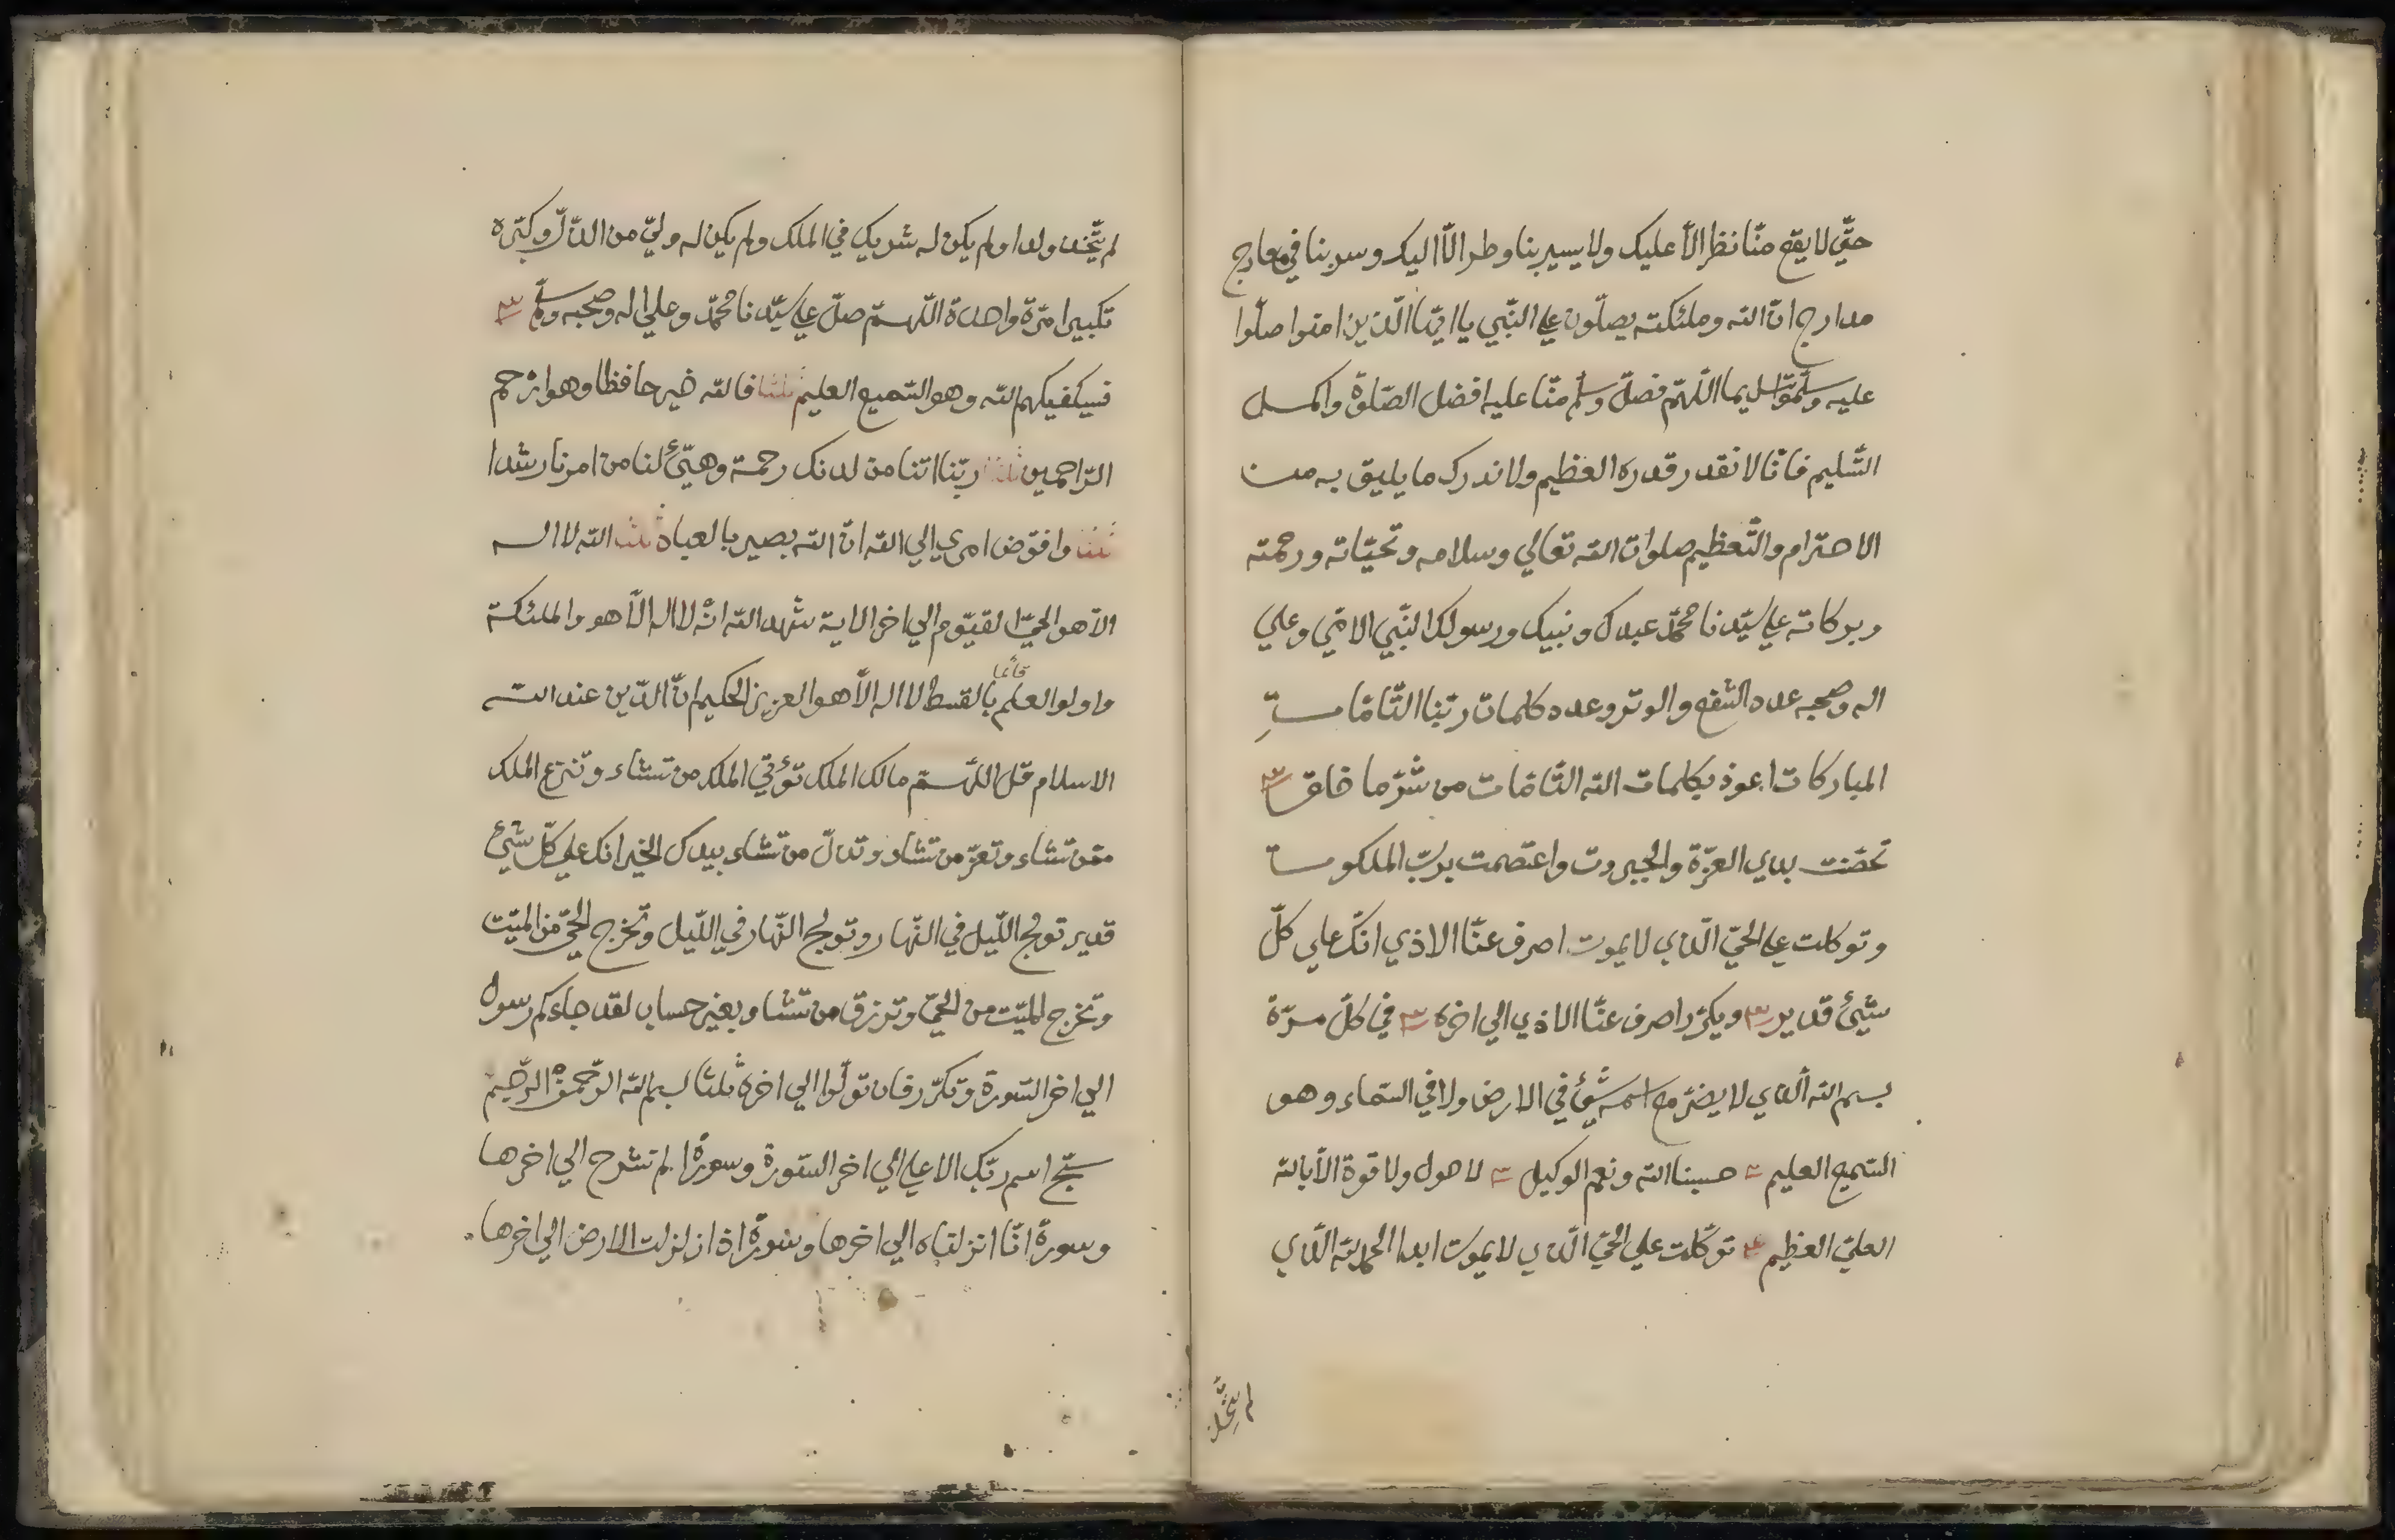 حتّي لا يقع منّا نظر الاّ عليك ولا يسير بنا وطر الاّ اليك وسر بنا في معارج
مدارج انّ الله وملئكته يصلّون علي النّبي يا ايّها الّذين امنوا صلّوا
عليه وسلّموا تسليما اللّهمّ فصلّ وسلّم منّا عليه افضل الصّلوة واكمل
التّسليم فانّا لا نقدر قدره العظيم ولا ندرك ما يليق به من
الاحترام والتّعظيم صلوات الله تعالي وسلامه وتحيّاته ورحمته
وبركاته علي سيّدنا محمّد عبدك ونبيك ورسولك النّبي الامّي وعلي
اله وصحبه عدد الشّفع والوتر وعدد كلمات ربّنا التّامّات
المباركات اعوذ بكلمات الله التّامّات من شرّ ما خلق ٣
تحصّنت بذي العزّة والجبروت واعتصمت بربّ الملكوت
وتوكلت علي الحيّ الّذي لا يموت اصرف عنّا الاذي انّك علي كلّ
شيئ قدير ٣ ويكرّر اصرف عنّا الاذي الي اخره ٣ في كلّ مرّة
بسم الله الّذي لا يضرّ مع اسمه شيئ في الارض ولا في السّماء وهو
السّميع العليم ٣ حسبنا الله ونعم الوكيل ٣ لا حول ولا قوة الاّ بالله
العليّ العظيم ٣ توكّلت علي الحيّ الّذي لا يموت ابدا الحمد لله الّذي
لم يتّخذ
لم يتّخذ ولدا ولم يكن له شريك في الملك ولم يكن له وليّ من الذّلّ وكبّره
تكبيرا مرّة واحدة اللّهمّ صلّ علي سيّدنا محمّد وعلي اله وصحبه وسلّم ٣
فسيكفيكهم الله وهو السّميع العليم ثلثا فالله خير حافظا وهو ارحم
الرّاحمين ثلثا ربّنا اتنا من لدنك رحمة وهيّئ لنا من امرنا رشدا
ثلثا وافوّض امري الي الله انّ الله بصير بالعباد ثلثا الله لا اله
الاّ هو الحيّ القيّوم الي اخر الاية شهد الله انّه لا اله الاّ هو والملئكة
واولوا العلم قائما بالقسط لا اله الاّ هو العزيز الحكيم انّ الدّين عند الله
الاسلام قل اللّهمّ مالك الملك تؤتي الملك من تشاء وتنزع الملك
ممّن تشاء وتعزّ من تشاء وتذلّ من تشاء بيدك الخير انك علي كلّ شيئ
قدير تولج اللّيل في النّهار وتولج النّهار في اللّيل وتخرج الحيّ من الميّت
وتخرج الميّت من الحيّ وترزق من تشاء بغير حساب لقد جاءكم رسول
الي اخر السّورة وتكرّر فان تولّوا الي اخره ثلثا بسم الله الرّحمن الرّحيم
سبّح اسم ربّك الاعلي الي اخر السّورة وسورة الم نشرح الي اخرها
وسورة انّا انزلناه الي اخرها وسورة اذا زلزلت الارض الي اخرها